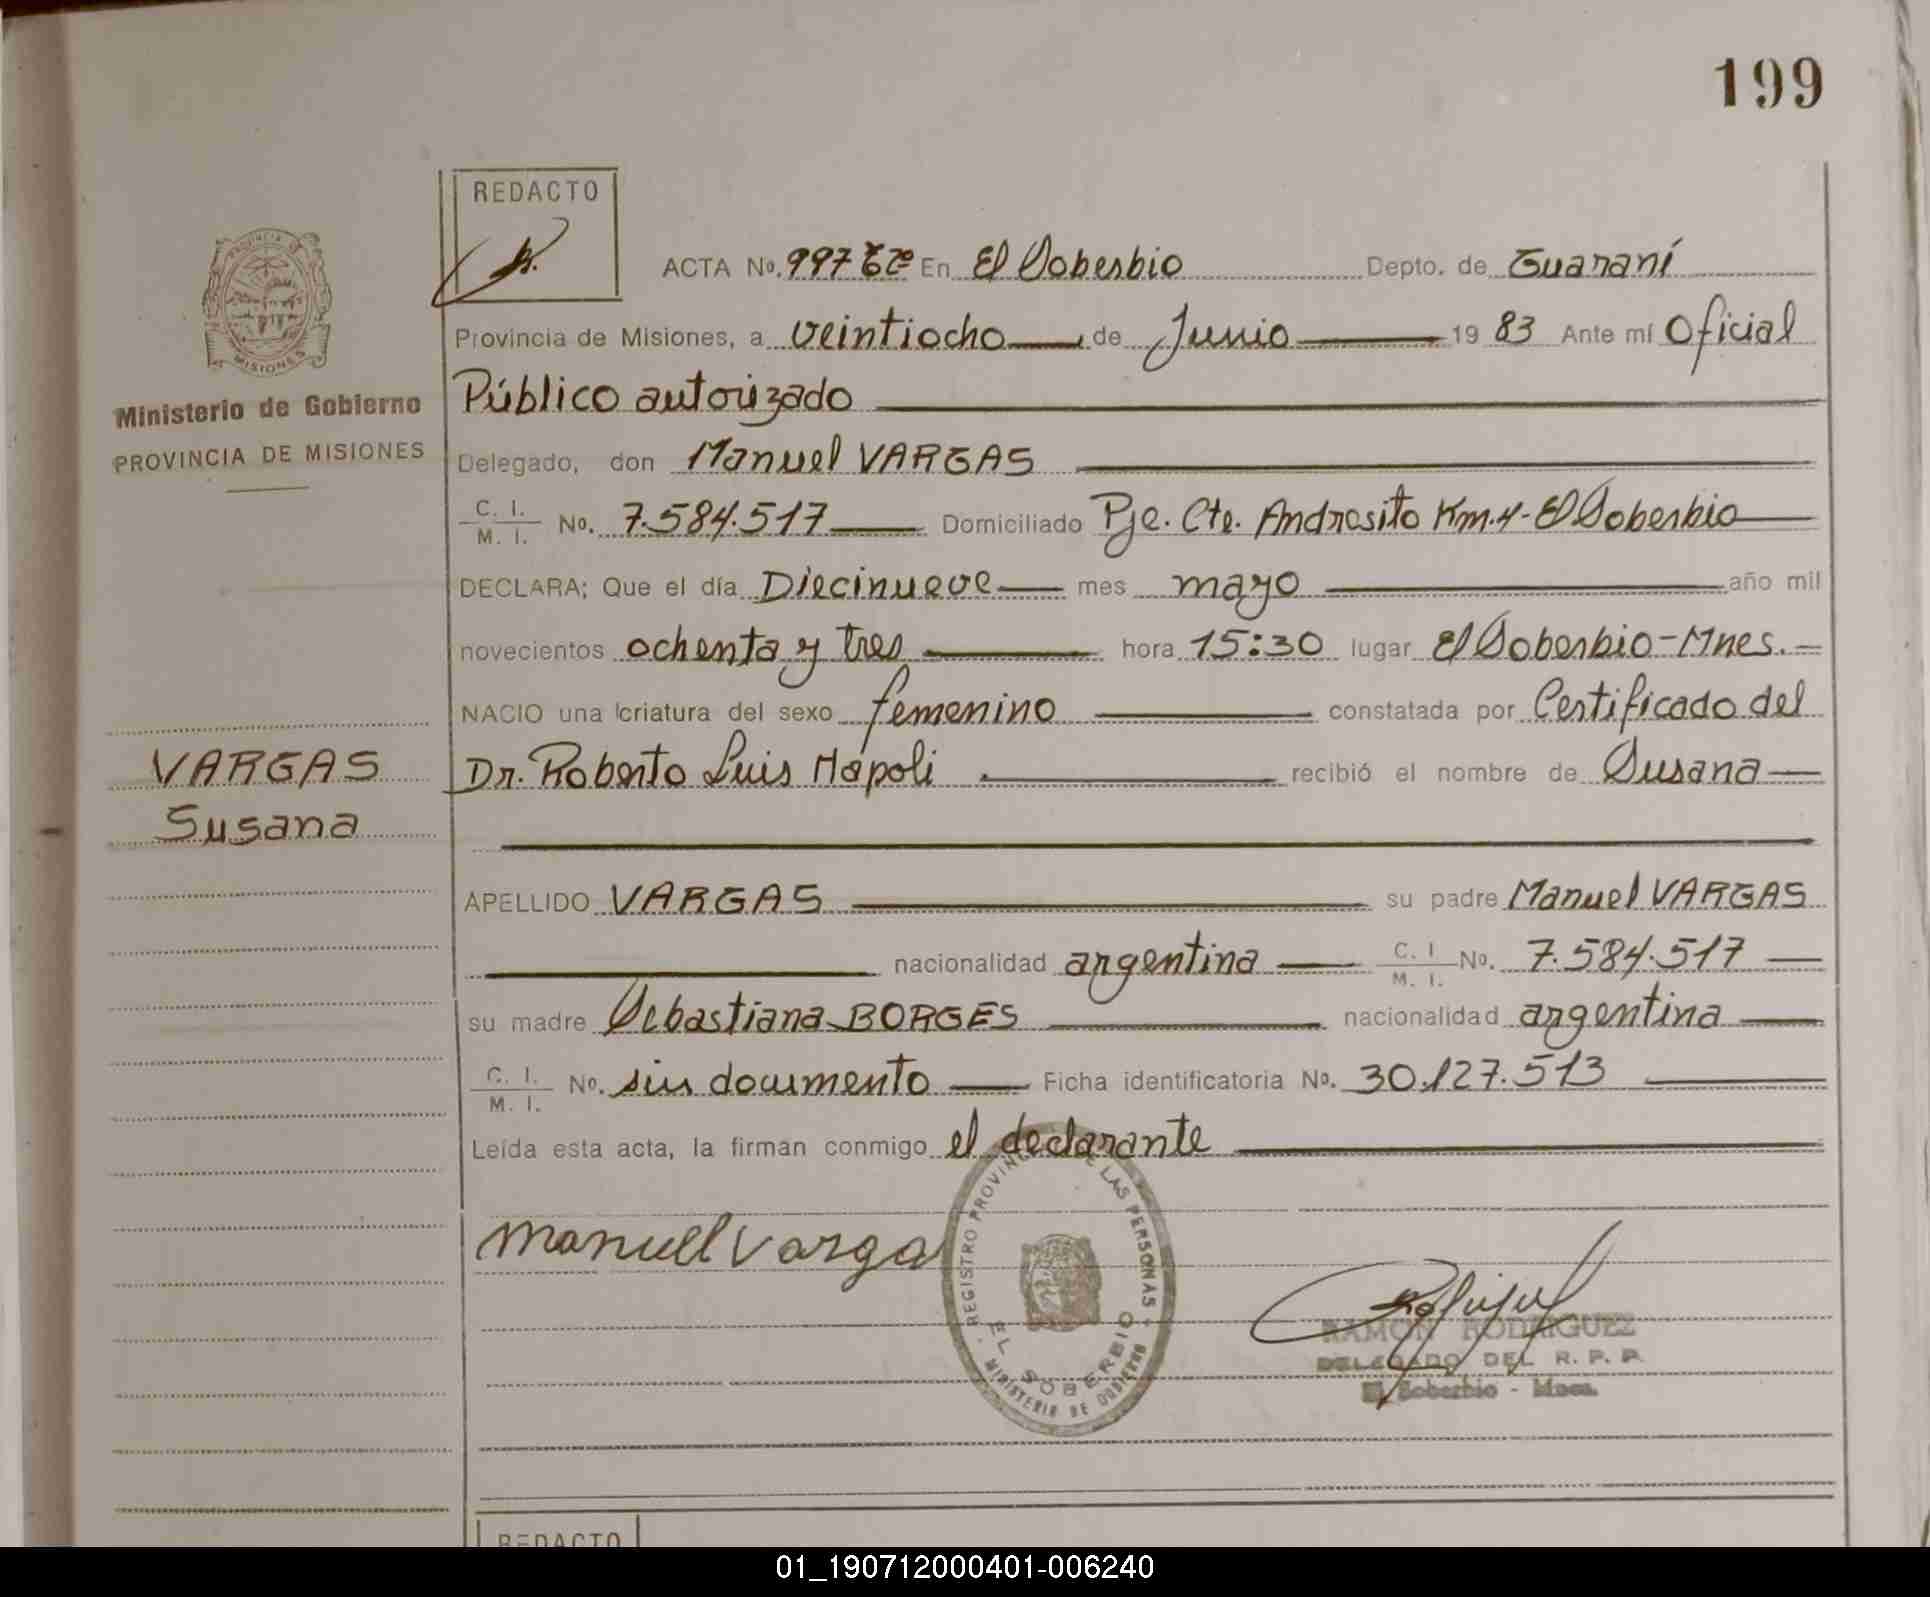 199
REDACTO
PROVINCIA DE
MISIONES
Ministerio de Gobierno
PROVINCIA DE MISIONES
VARGAS
Susana
ACTA No. 997 Tº En El Soberbio Depto. de Guaraní
Provincia de Misiones, a veintiocho de Junio 19 83 Ante mí Oficial
Público autorizado
Delegado, don Manuel VARGAS
C. I. M. I. No. 7.584.517 Domiciliado Pje. Cte. Andresito Km.4-El Soberbio
DECLARA; Que el día Diecinueve mes mayo año mil
novecientos ochenta y tres hora 15:30 lugar El Soberbio-Mnes.-
NACIO una criatura del sexo femenino constatada por Certificado del
Dr. Roberto Luis Nápoli recibió el nombre de Susana
APELLIDO VARGAS su padre Manuel VARGAS
nacionalidad argentina C. I M. I. No. 7.584.517
su madre Sebastiana BORGES nacionalidad argentina
C. I. M. I. No. sin documento Ficha identificatoria No. 30.127.513
Leída esta acta, la firman conmigo el declarante
Manuel Varga
REGISTRO PROVINC DE LAS PERSONAS
EL SOBERBIO
MINISTERIO DE GOBIERNO
RAMON RODRIGUEZ
DELEGADO DEL R. P. P.
El Soberbio - Mnes.
REDACTO
01_190712000401-006240